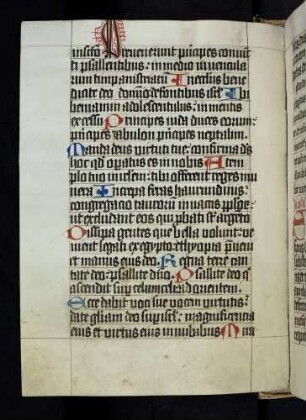 in ipso Prevenerunt principes coniuncti
ti psallentibus : in medio iuvencula
rum timpanistriarum In ecclesiis bene
dicite deo domino de fontibus israhel Ibi
beniamin adolescentulus : in mentis
excessu Principes iuda duces eorum :
principes zabulon principes neptalim
Manda deus virtuti tue : confirma deus
hoc quod operatus es in nobis A tem
plo tuo in ierusalem : tibi offerent reges mu
nera Increpa feras harundinis :
congregacio taurorum in vaccis populorum :
ut excludant eos qui probati sunt argento
Dissipa gentes que bella volunt : ve
nient legati ex egypto : ethyopia preveniet
et manus eius deo Regna terre can
tate deo : psallite domino Psallite deo qui
ascendit super celum celi ad orientem
Ecce dabit voci sue vocem virtutis :
date gloriam deo super israhel : magnificencia
eius et virtus eius in nubibus Mira